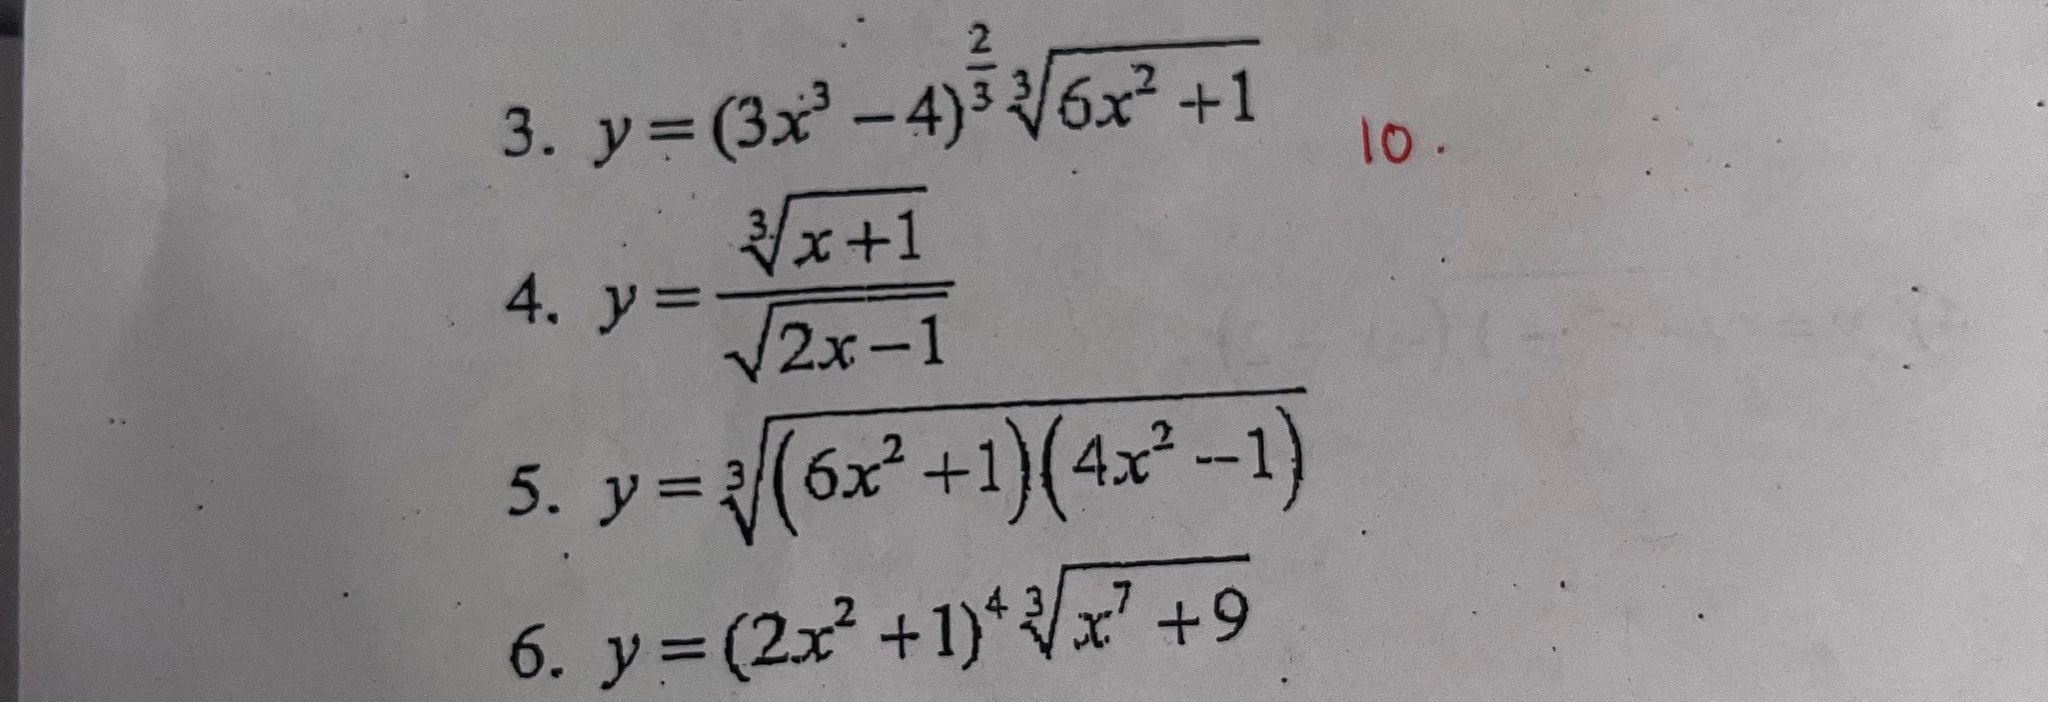 3. y = (3x³ − 4)^(2/3) ∛(6x² + 1)
10.
4. y = ∛(x+1) / √(2x−1)
5. y = ∛((6x² + 1)(4x² − 1))
6. y = (2x² + 1)⁴ ∛(x⁷ + 9)